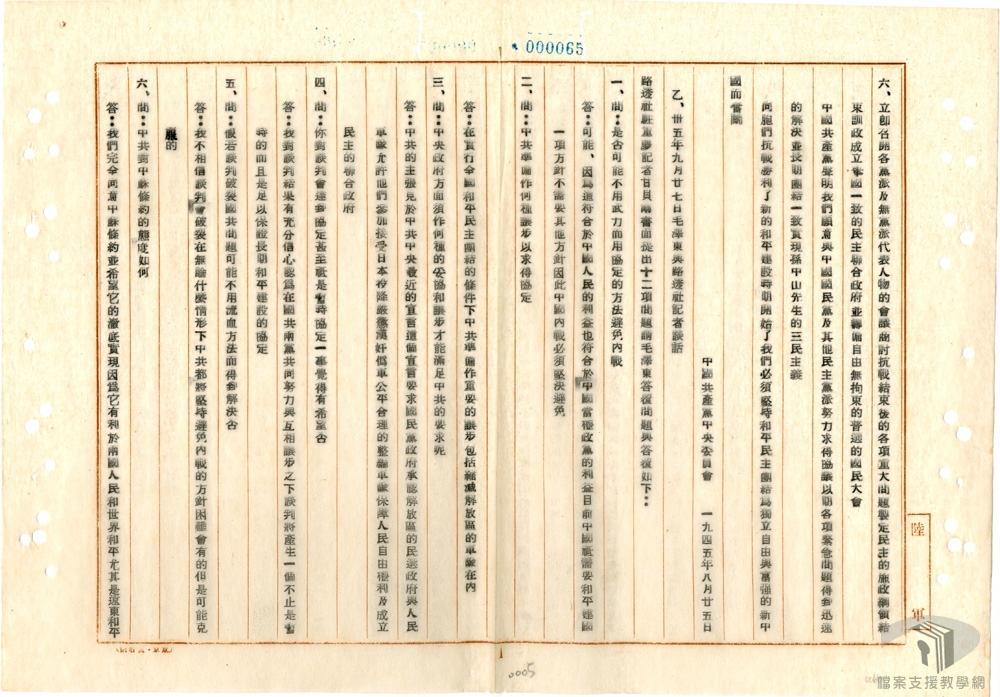 000065
六、立即召開各黨派及無黨派代表人物的會議商討抗戰結束後的各項重大問題製定民主的施政綱領結
束訓政成立舉國一致的民主聯合政府並籌備自由無拘束的普選的國民大會
中國共產黨聲明我們願意與中國國民黨及其他民主黨派努力求得協議以期各項緊急問題得到迅速
的解決並長期團結一致實現孫中山先生的三民主義
同胞們抗戰勝利了新的和平建設時期開始了我們必須堅持和平民主團結為獨立自由與富強的新中
國而奮鬥
中國共產黨中央委員會 一九四五年八月廿五日
乙、卅五年九月廿七日毛澤東與路透社記者談話
路透社駐重慶記者甘貝爾書面提出十二項問題請毛澤東答復問題與答復如下：
一、問：是否可能不用武力而用協定的方法避免內戰
答：可能、因為這符合於中國人民的利益也符合於中國當權政黨的利益目前中國祇需要和平建國
一項方針不需要其他方針因此中國內戰必須堅決避免
二、問：中共準備作何種讓步以求得協定
答：在實行全國和平民主團結的條件下中共準備作重要的讓步包括縮減解放區的軍隊在內
三、問：中央政府方面須作何種的妥協和讓步才能滿足中共的要求呢
答：中共的主張見於中共中央最近的宣言這個宣言要求國民黨政府承認解放區的民選政府與人民
軍隊允許他們參加接受日本投降嚴懲漢奸偽軍公平合理的整編軍隊保障人民自由權利及成立
民主的聯合政府
四、問：你對談判會達到協定甚至祇是暫時協定一事覺得有希望否
答：我對談判結果有充分信心認為在國共兩黨共同努力與互相讓步之下談判將產生一個不止是暫
時的而且是足以保證長期和平建設的協定
五、問：假若談判破裂國共問題可能不用流血方法而得到解決否
答：我不相信談判會破裂在無論什麼情形下中共都將堅持避免內戰的方針困難會有的但是可能克
服的
六、問：中共對中蘇條約的態度如何
答：我們完全同意中蘇條約並希望它的澈底實現因為它有利於兩國人民和世界和平尤其是遠東和平
陸 軍
0005
檔案支援教學網